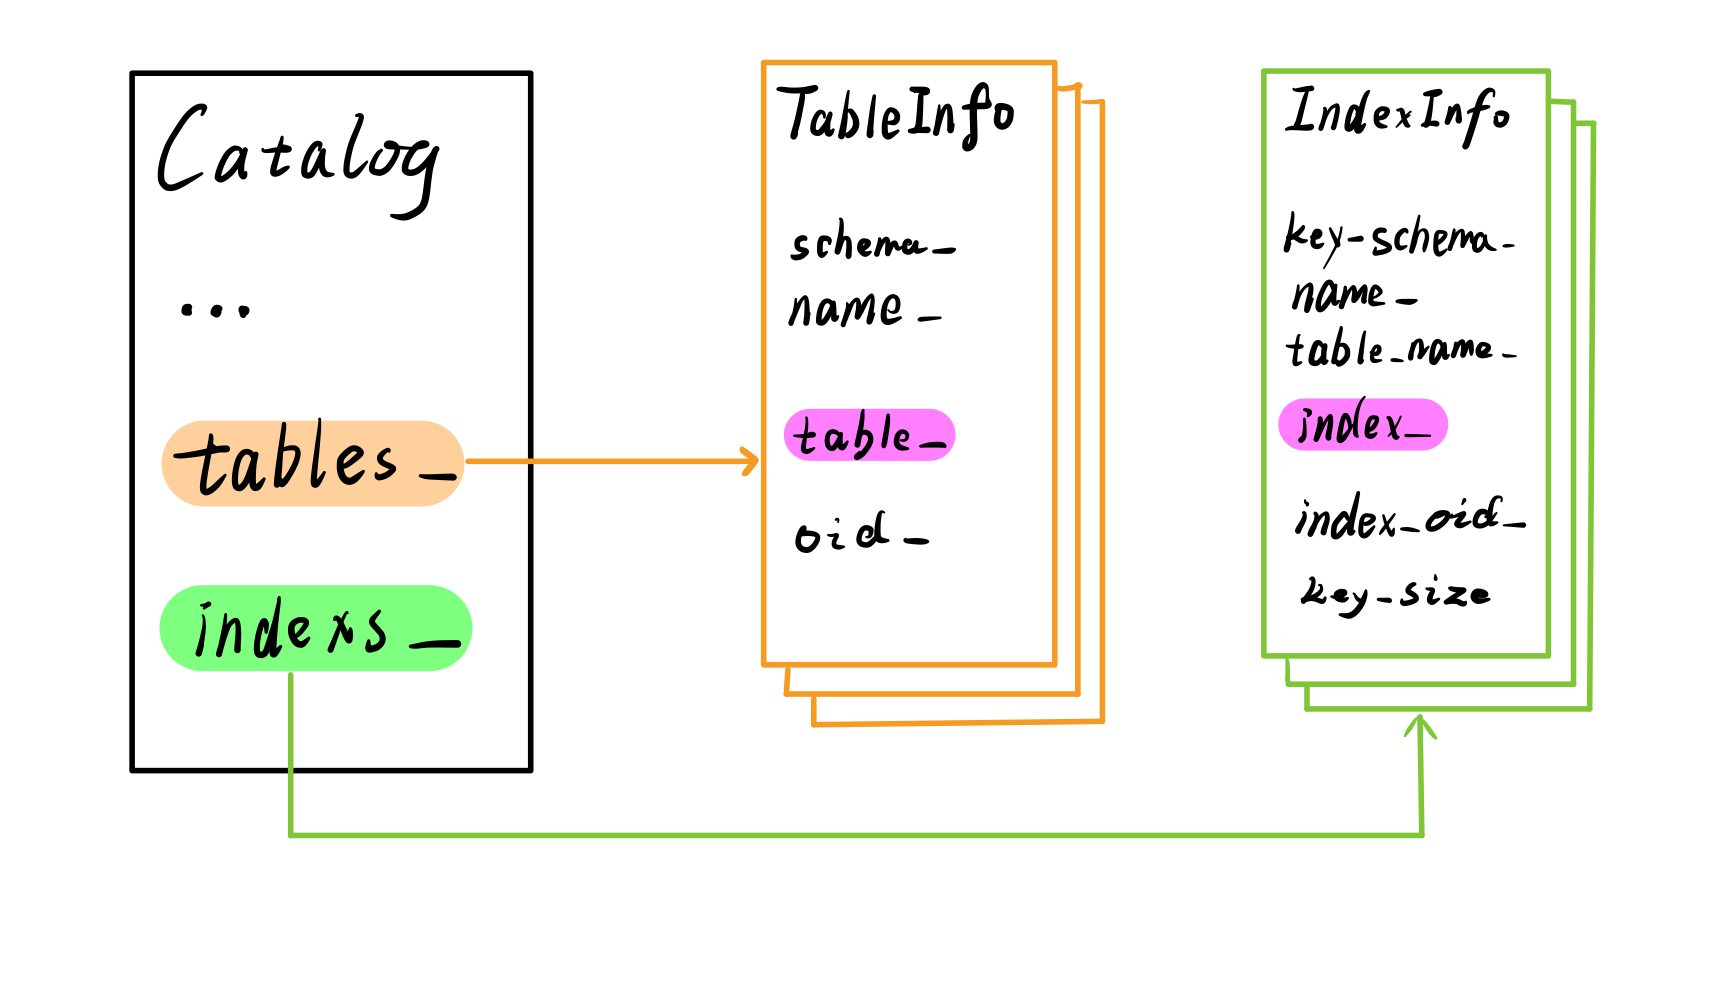 Catalog
...
tables_
indexs_
TableInfo
schema_
name_
table_
oid_
IndexInfo
key-schema_
name_
table_name_
index_
index_oid_
key_size